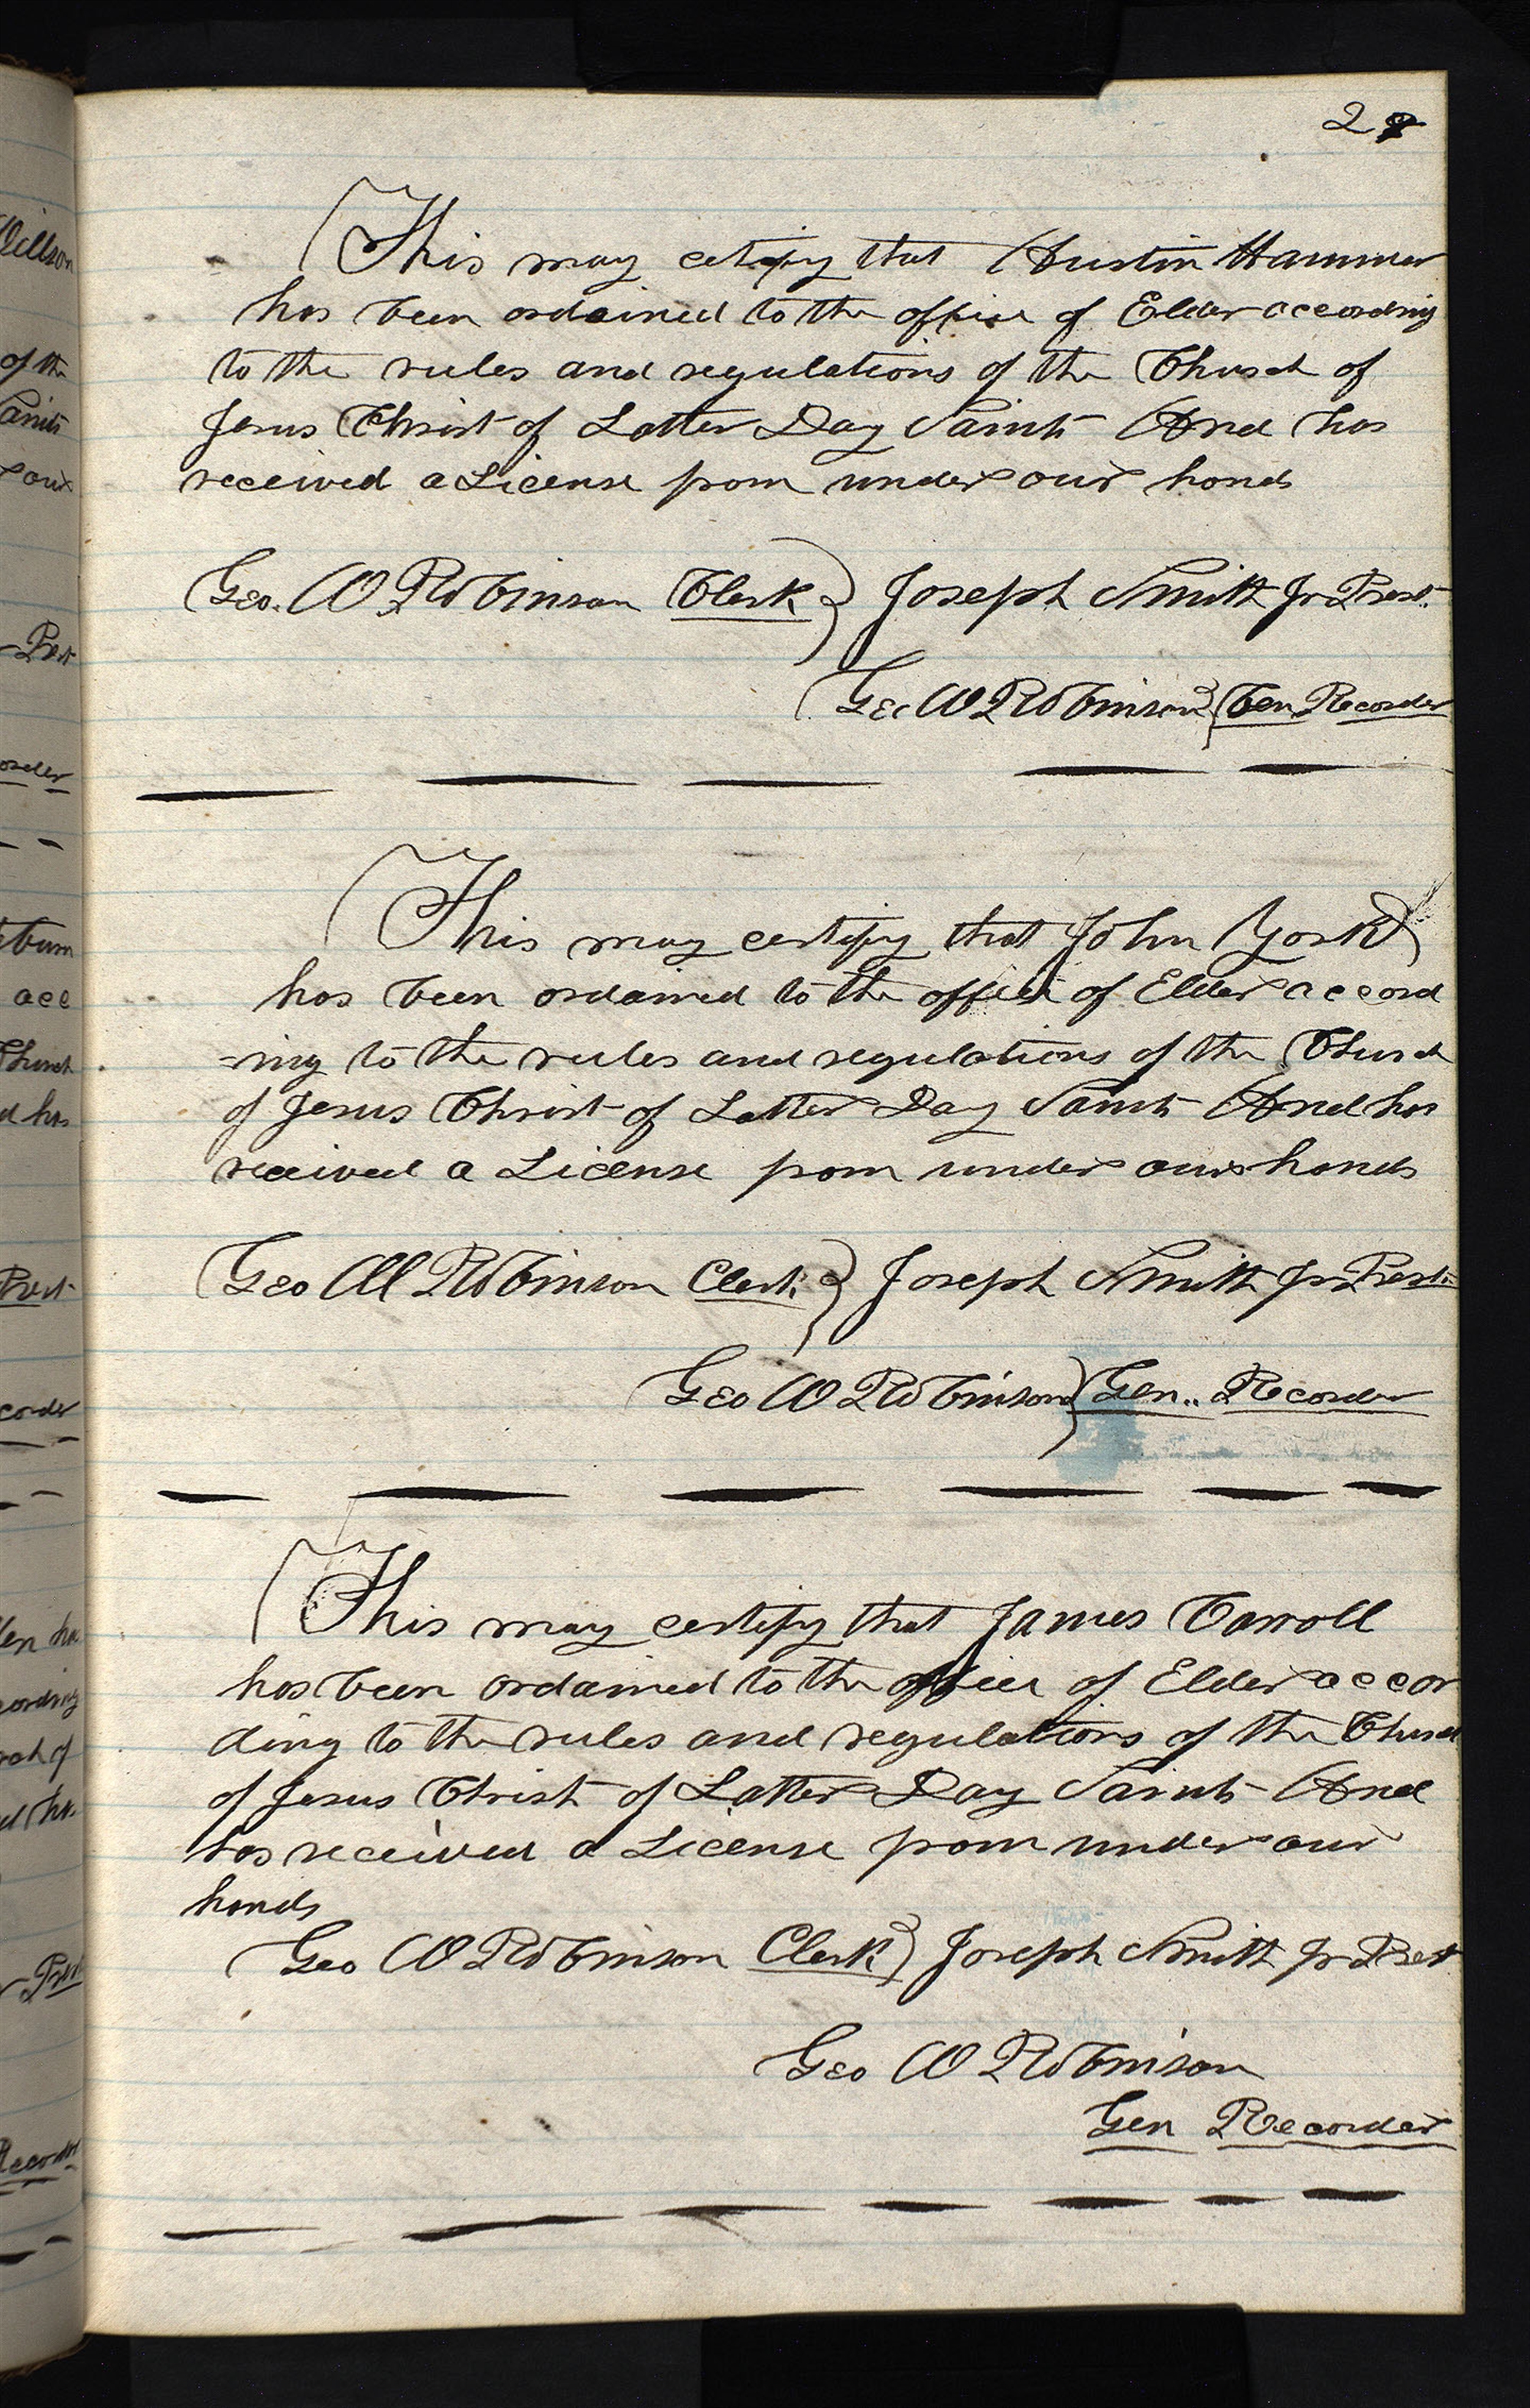 2
This may cetify that Austin Hammer
has been ordained to the office of Elder according
to the rules and regulations of the Church of
Jesus Christ of Latter Day Saints And has
received a License from under our hands
Geo. W Robinson Clerk } Joseph Smith Jr Prest.
Geo W Robinson } Gen Recorder
This may certify that John York
has been ordained to the office of Elder accord
-ing to the rules and regulations of the Church
of Jesus Christ of Latter Day Saints And has
received a License from under our hands
Geo W Robinson Clerk } Joseph Smith Jr Prest.
Geo W Robinson } Gen.. Recorder
This may certify that James Carroll
has been ordained to the office of Elder accor
ding to the rules and regulations of the Church
of Jesus Christ of Latter Day Saints And
has received a License from under our
hands
Geo W Robinson Clerk } Joseph Smith Jr Prest
Geo W Robinson
Gen Recorder